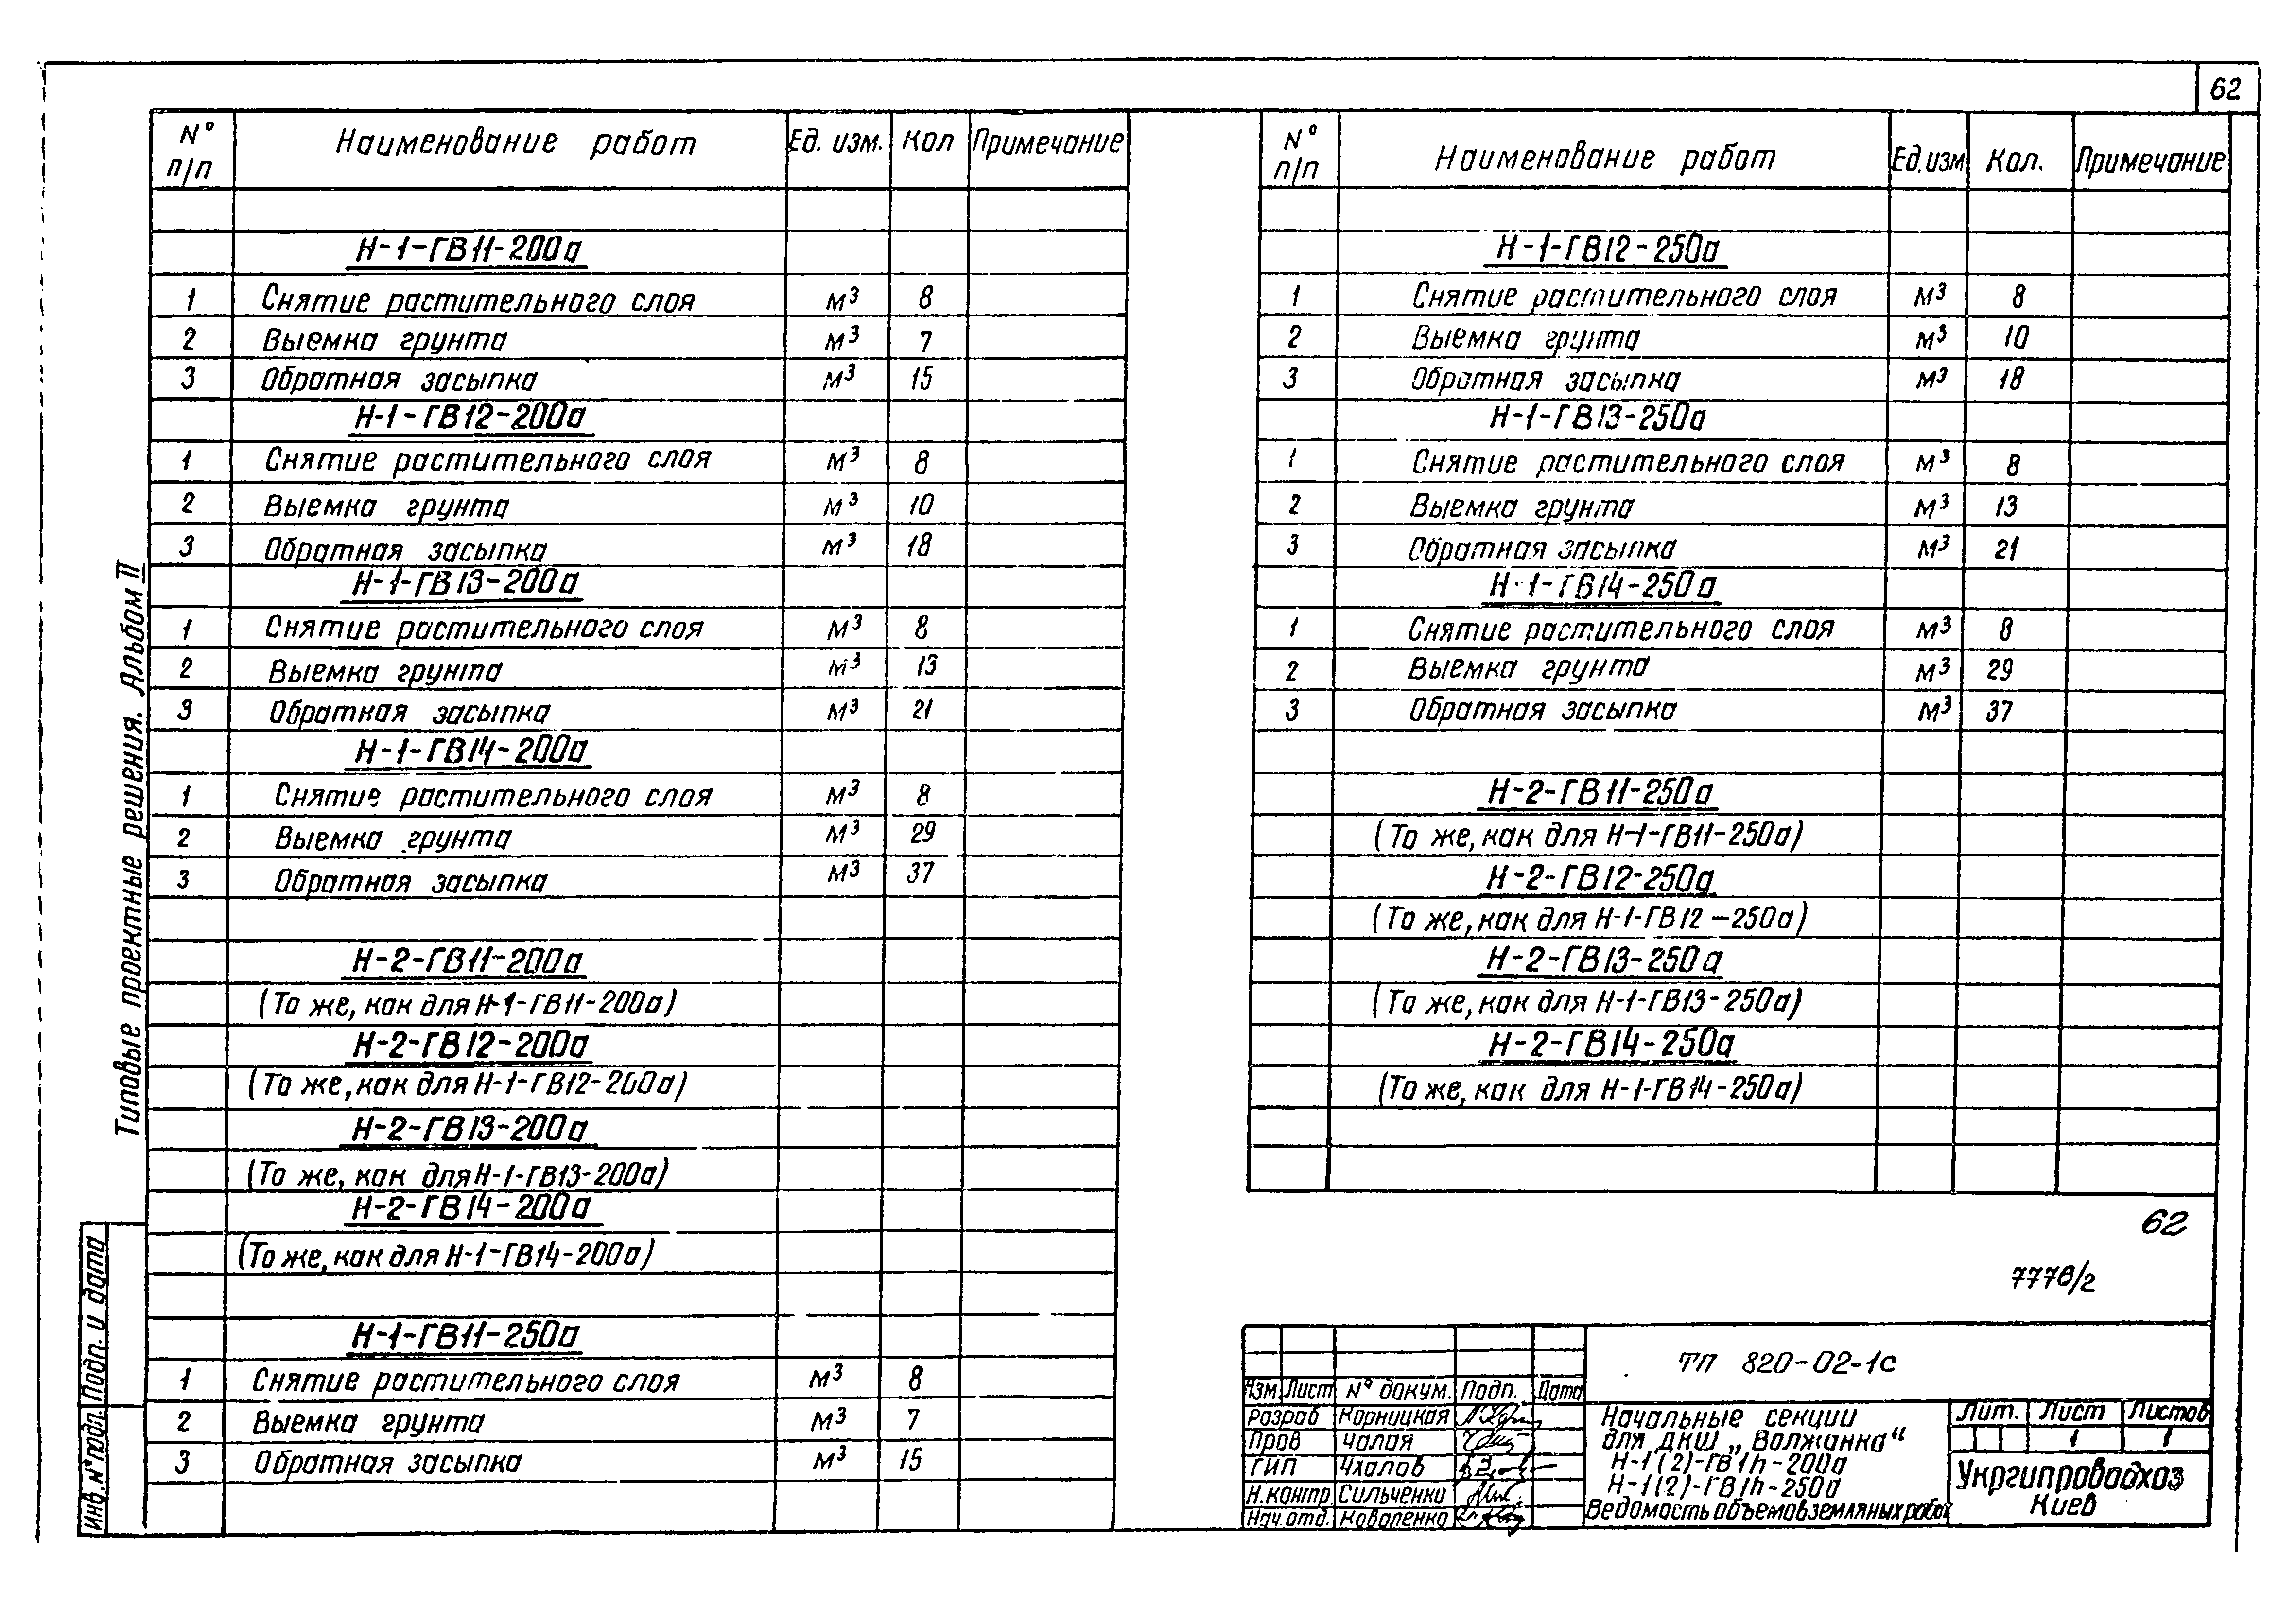 62
N° п/п Наименование работ Ед. изм. Кол Примечание
Н-1-ГВ11-200а
1 Снятие растительного слоя м³ 8
2 Выемка грунта м³ 7
3 Обратная засыпка м³ 15
Н-1-ГВ12-200а
1 Снятие растительного слоя м³ 8
2 Выемка грунта м³ 10
3 Обратная засыпка м³ 18
Н-1-ГВ13-200а
1 Снятие растительного слоя м³ 8
2 Выемка грунта м³ 13
3 Обратная засыпка м³ 21
Н-1-ГВ14-200а
1 Снятие растительного слоя м³ 8
2 Выемка грунта м³ 29
3 Обратная засыпка м³ 37
Н-2-ГВ11-200а
(То же, как для Н-1-ГВ11-200а)
Н-2-ГВ12-200а
(То же, как для Н-1-ГВ12-200а)
Н-2-ГВ13-200а
(То же, как для Н-1-ГВ13-200а)
Н-2-ГВ14-200а
(То же, как для Н-1-ГВ14-200а)
Н-1-ГВ11-250а
1 Снятие растительного слоя м³ 8
2 Выемка грунта м³ 7
3 Обратная засыпка м³ 15
N° п/п Наименование работ Ед. изм Кол. Примечание
Н-1-ГВ12-250а
1 Снятие растительного слоя м³ 8
2 Выемка грунта м³ 10
3 Обратная засыпка м³ 18
Н-1-ГВ13-250а
1 Снятие растительного слоя м³ 8
2 Выемка грунта м³ 13
3 Обратная засыпка м³ 21
Н-1-ГВ14-250а
1 Снятие растительного слоя м³ 8
2 Выемка грунта м³ 29
3 Обратная засыпка м³ 37
Н-2-ГВ11-250а
(То же, как для Н-1-ГВ11-250а)
Н-2-ГВ12-250а
(То же, как для Н-1-ГВ12-250а)
Н-2-ГВ13-250а
(То же, как для Н-1-ГВ13-250а)
Н-2-ГВ14-250а
(То же, как для Н-1-ГВ14-250а)
62
7778/2
Типовые проектные решения. Альбом II
Подп. и дата
Инв. N° подл.
ТП 820-02-1с
Изм. Лист N° докум. Подп. Дата
Разраб Корницкая
Пров Чалая
ГИП Чхалов
Н.контр. Сильченко
Нач.отд. Коваленко
Начальные секции
для ДКШ „Волжанка“
Н-1(2)-ГВ1h-200а
Н-1(2)-ГВ1h-250а
Ведомость объемов земляных работ
Лит. Лист Листов
1 1
Укргипроводхоз
Киев